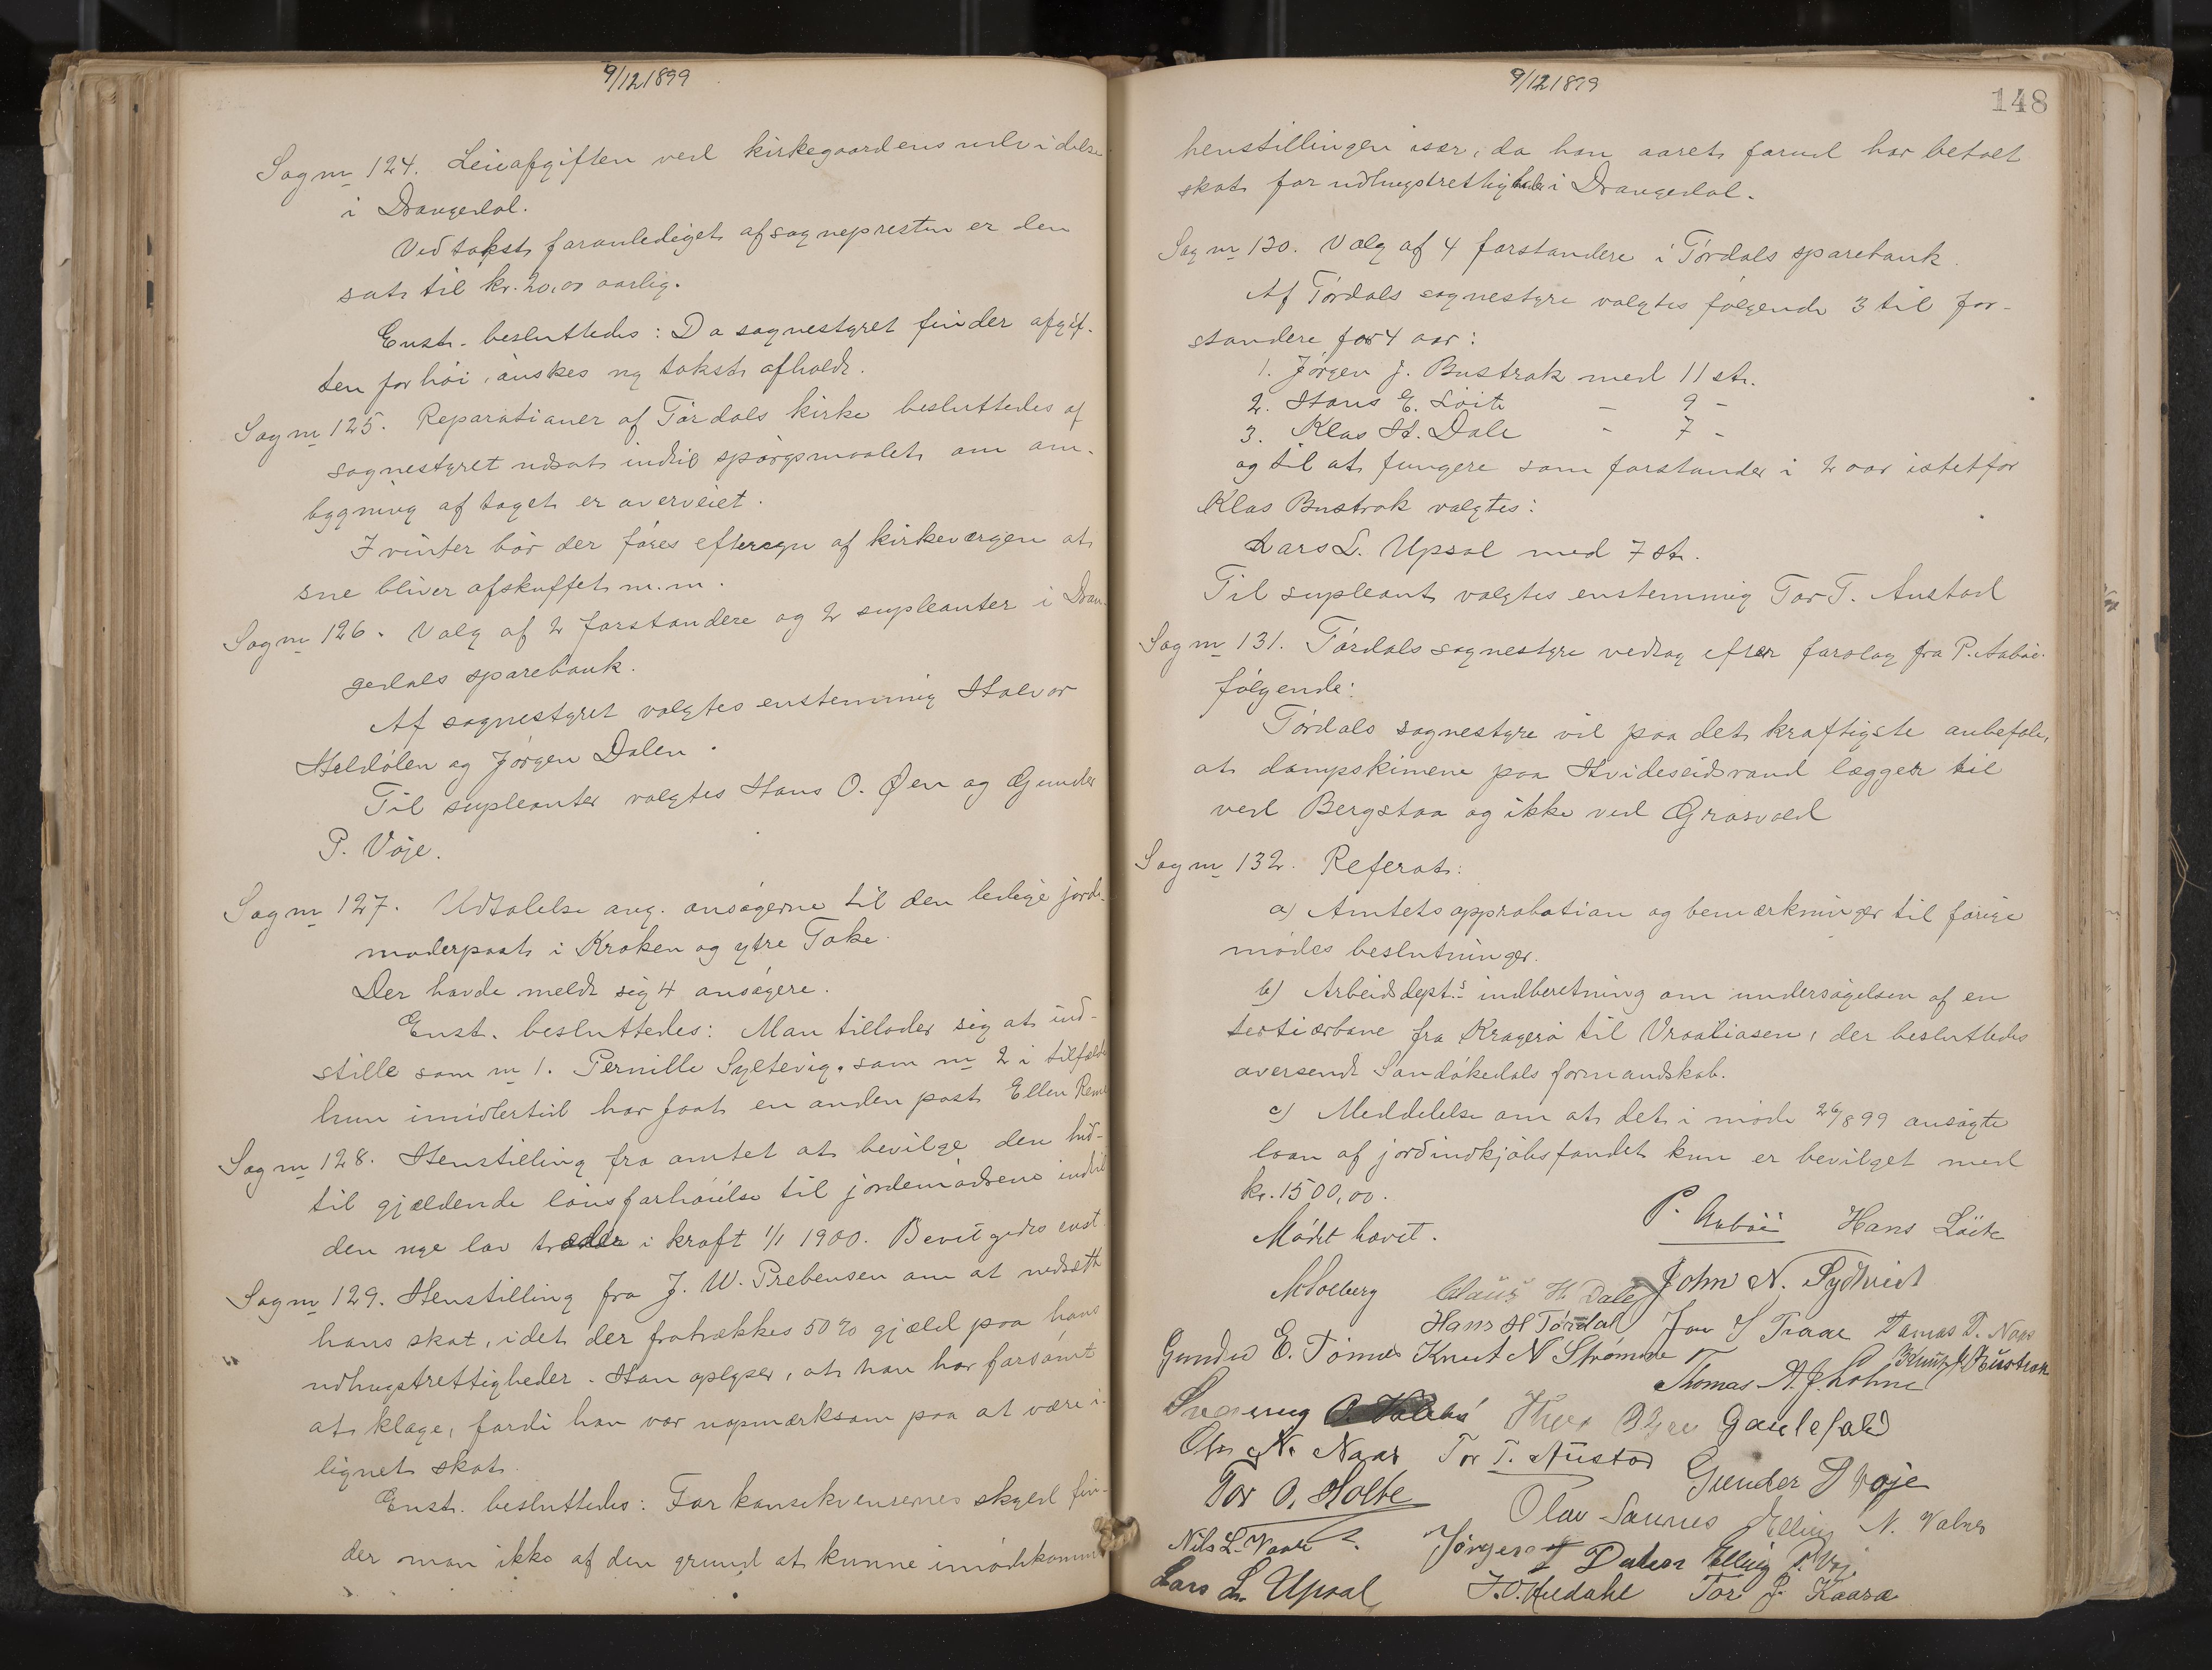 9/12 1899
Sag nr 124. Leieafgiften ved kirkegaardens udvidelse
i Drangedal.
Ved takst foranlediget af sognepresten er den
sat til kr. 20,00 aarlig.
Enst. besluttedes: Da sognestyret finder afgif-
ten for høi, ønskes ny takst afholdt.
Sag nr 125. Reparationer af Tørdals kirke besluttedes af
sognestyret udsat indtil spørgsmaalet om om-
bygning af taget er overveiet.
I vinter bør der føres eftersyn af kirkeværgen at
sne bliver afskuffet m.m.
Sag nr 126. Valg af 2 forstandere og 2 supleanter i Dran-
gedals sparebank.
Af sognestyret valgtes enstemmig Halvor
Heldølen og Jørgen Dalen.
Til supleanter valgtes Hans O. Øen og Gunder
P. Vøje.
Sag nr 127. Udtalelse ang. ansøgerne til den ledige jorde-
moderpost i Kroken og ytre Toke.
Der havde meldt sig 4 ansøgere.
Enst. besluttedes: Man tillader sig at ind-
stille som nr 1. Pernille Syltevig, som nr 2 i tilfælde
hun imidlertid har faat en anden post Ellen
Sag nr 128. Henstilling fra amtet at bevilge den hid-
til gjældende lønsforhøielse til jordemødrene indtil
den nye lov træder i kraft 1/1 1900. Bevilgedes enst.
Sag nr 129. Henstilling fra J. W. Prebensen om at nedsætte
hans skat, idet der fratrækkes 50% gjæld paa hans
udhugstrettigheder. Han oplyser, at han har forsømt
at klage, fordi han var uopmærksom paa at være i-
lignet skat.
Enst. besluttedes: For konsekvensernes skyld fin-
der man ikke af den grund at kunne imødekomme
9/12 1899
148
henstillingen især, da han aaret forud har betalt
skat for udhugstrettigheder i Drangedal.
Sag nr 130. Valg af 4 forstandere i Tørdals sparebank.
Af Tørdals sognestyre valgtes følgende 3 til for-
standere for 4 aar:
1. Jørgen J. Bustrak med 11 st.
2. Hans E. Løite - 9 -
3. Klas H. Dale - 7 -
og til at fungere som forstander i 2 aar istetfor
Klas Bustrak valgtes:
Lars L. Upsal med 7 st.
Til supleant valgtes enstemmig Tor T. Austad
Sag nr 131. Tørdals sognestyre vedtog efter forslag fra P. Aabøe
følgende:
Tørdals sognestyre vil paa det kraftigste anbefale,
at dampskibene paa Hvideseidvand lægger til
ved Bergstaa og ikke ved Grasvold
Sag nr 132. Referat:
a) Amtets approbation og bemærkninger til forrige
mødes beslutninger.
b) Arbeidsdept.s indberetning om undersøgelsen af en
tertiærbane fra Kragerø til Vraaliosen, der besluttedes
oversendt Sandøkedals formandskab.
c) Meddelelse om at det i møde 26/8 99 ansøgte
laan af jordindkjøbsfondet kun er bevilget med
kr. 1500,00.
Mødet hævet.
P. Aabøe Hans Løite
M Solberg Claus H. Dale John N. Sydtveit
Hans H Tørdal Jon S Traae Tomas D. Naas
Gunder E. Tømes Knut N Strømme Thomas A. J. Lohne
Knut J Bustrak
Gautefald
Ole N. Naas Tor T. Austad Gunder P Vøje
Tor O. Holte Olav Saunes Elling N. Valnes
Nils L. Jørgen Dalen Elling
Lars L. Upsal J. O. Tor J. Kaasa